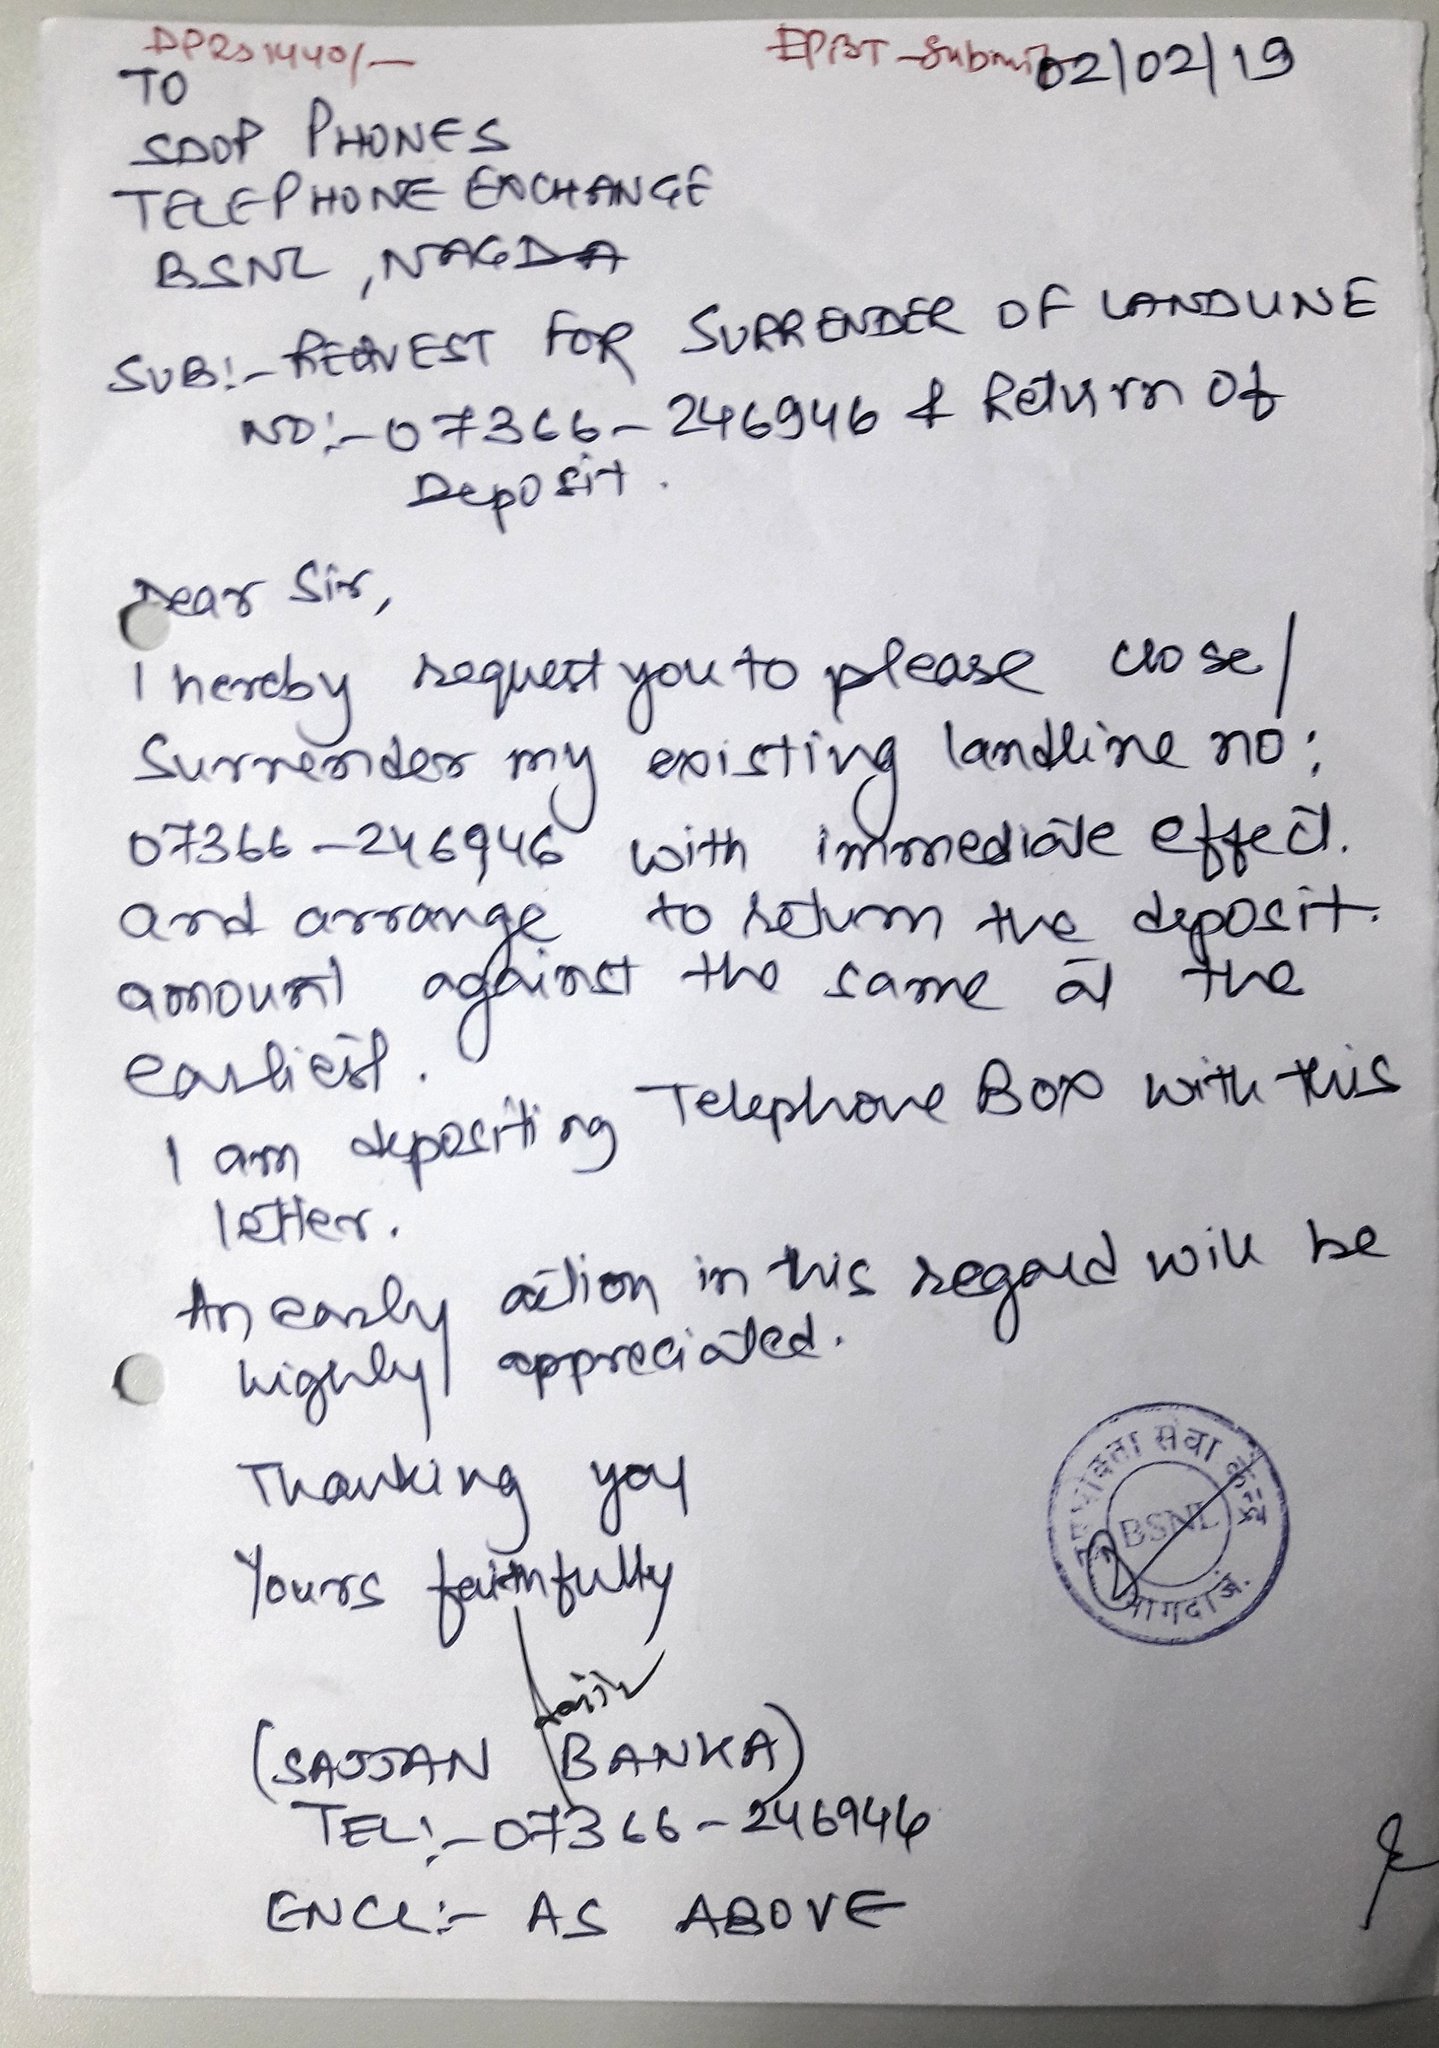 DPRS 1440/-
EPBT - Submit
02/02/19
TO
SDOP PHONES
TELEPHONE EXCHANGE
BSNL, NAGDA
SUB:- REQUEST FOR SURRENDER OF LANDLINE
NO:- 07366-246946 & Return Of
Deposit.
Dear Sir,
I hereby request you to please close/
Surrender my existing landline no:
07366-246946 with immediate effect.
and arrange to return the deposit.
amount against the same at the
earliest.
I am depositing Telephone Box with this
letter.
An early action in this regard will be
highly appreciated.
Thanking you
Yours faithfully
(SAJJAN BANKA)
TEL:- 07366-246946
ENCL:- AS ABOVE
उपभोक्ता सेवा केन्द्र
BSNL
नागदा जं.